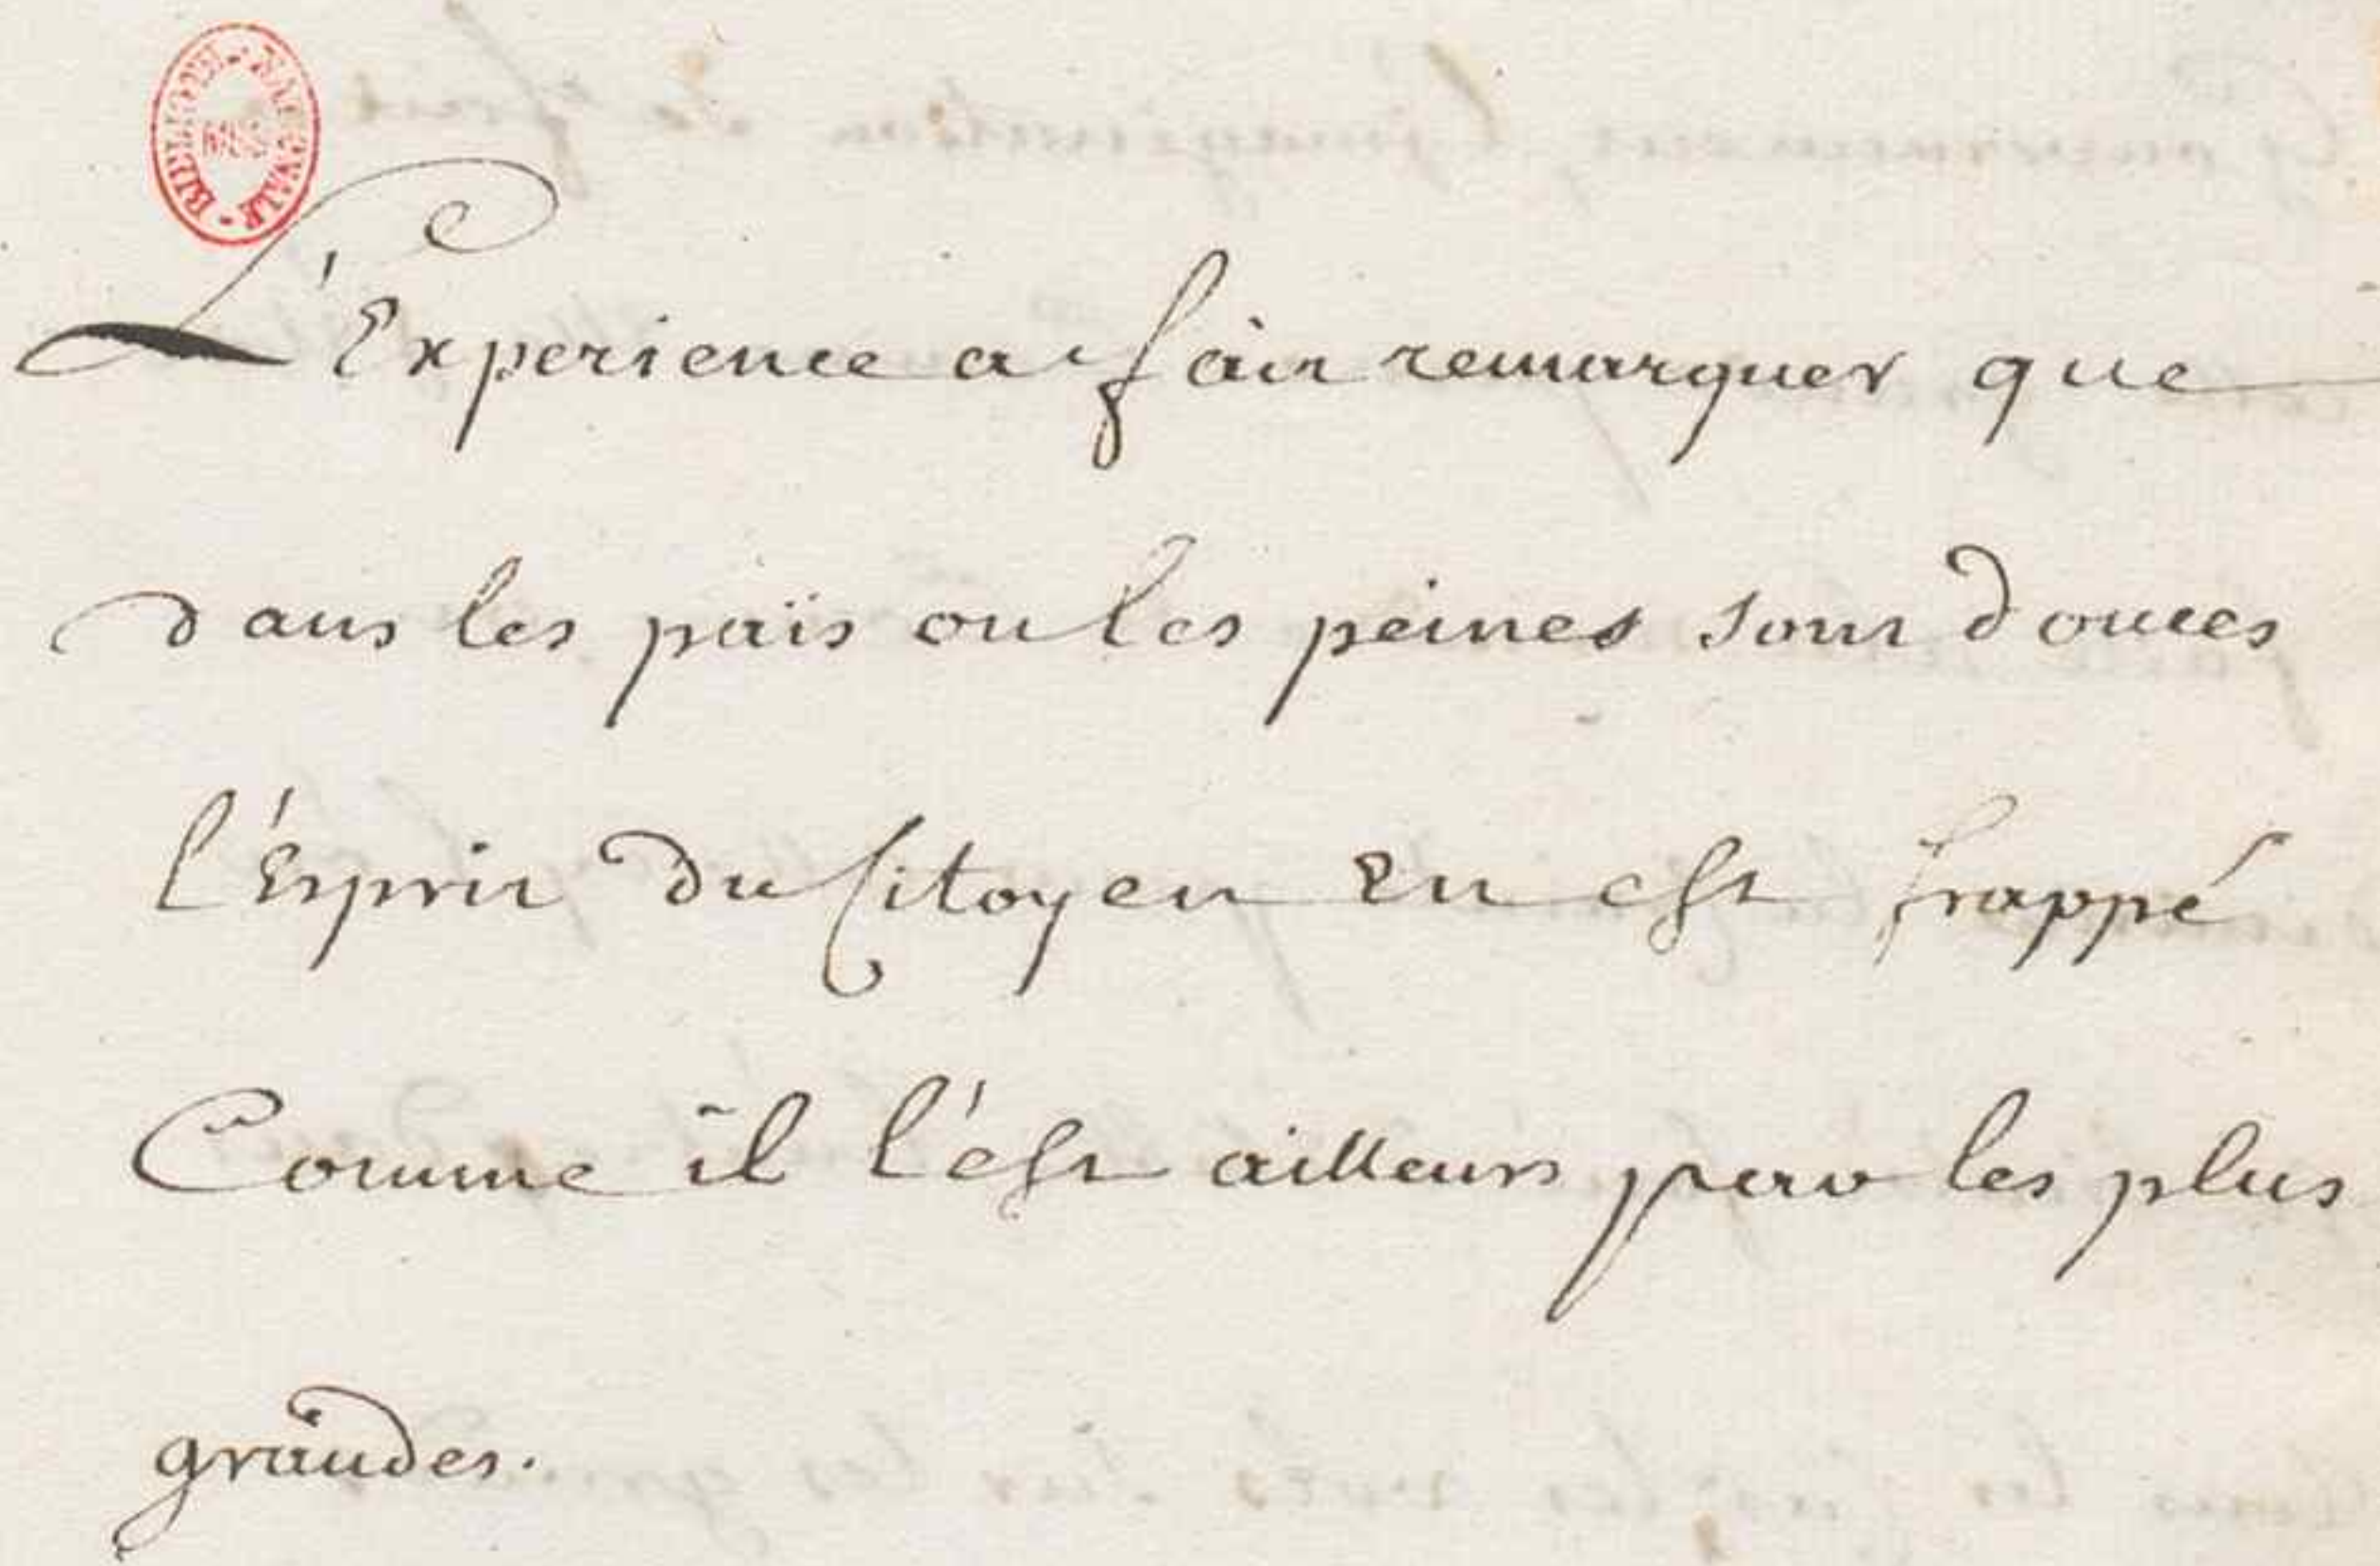 BIBLIOTH. NATIONALE MSS
L'Experience a fait remarquer que
dans les païs ou les peines sont douces
l'Esprit du Citoyen En est frappé
Comme il l'est ailleurs par les plus
grandes.